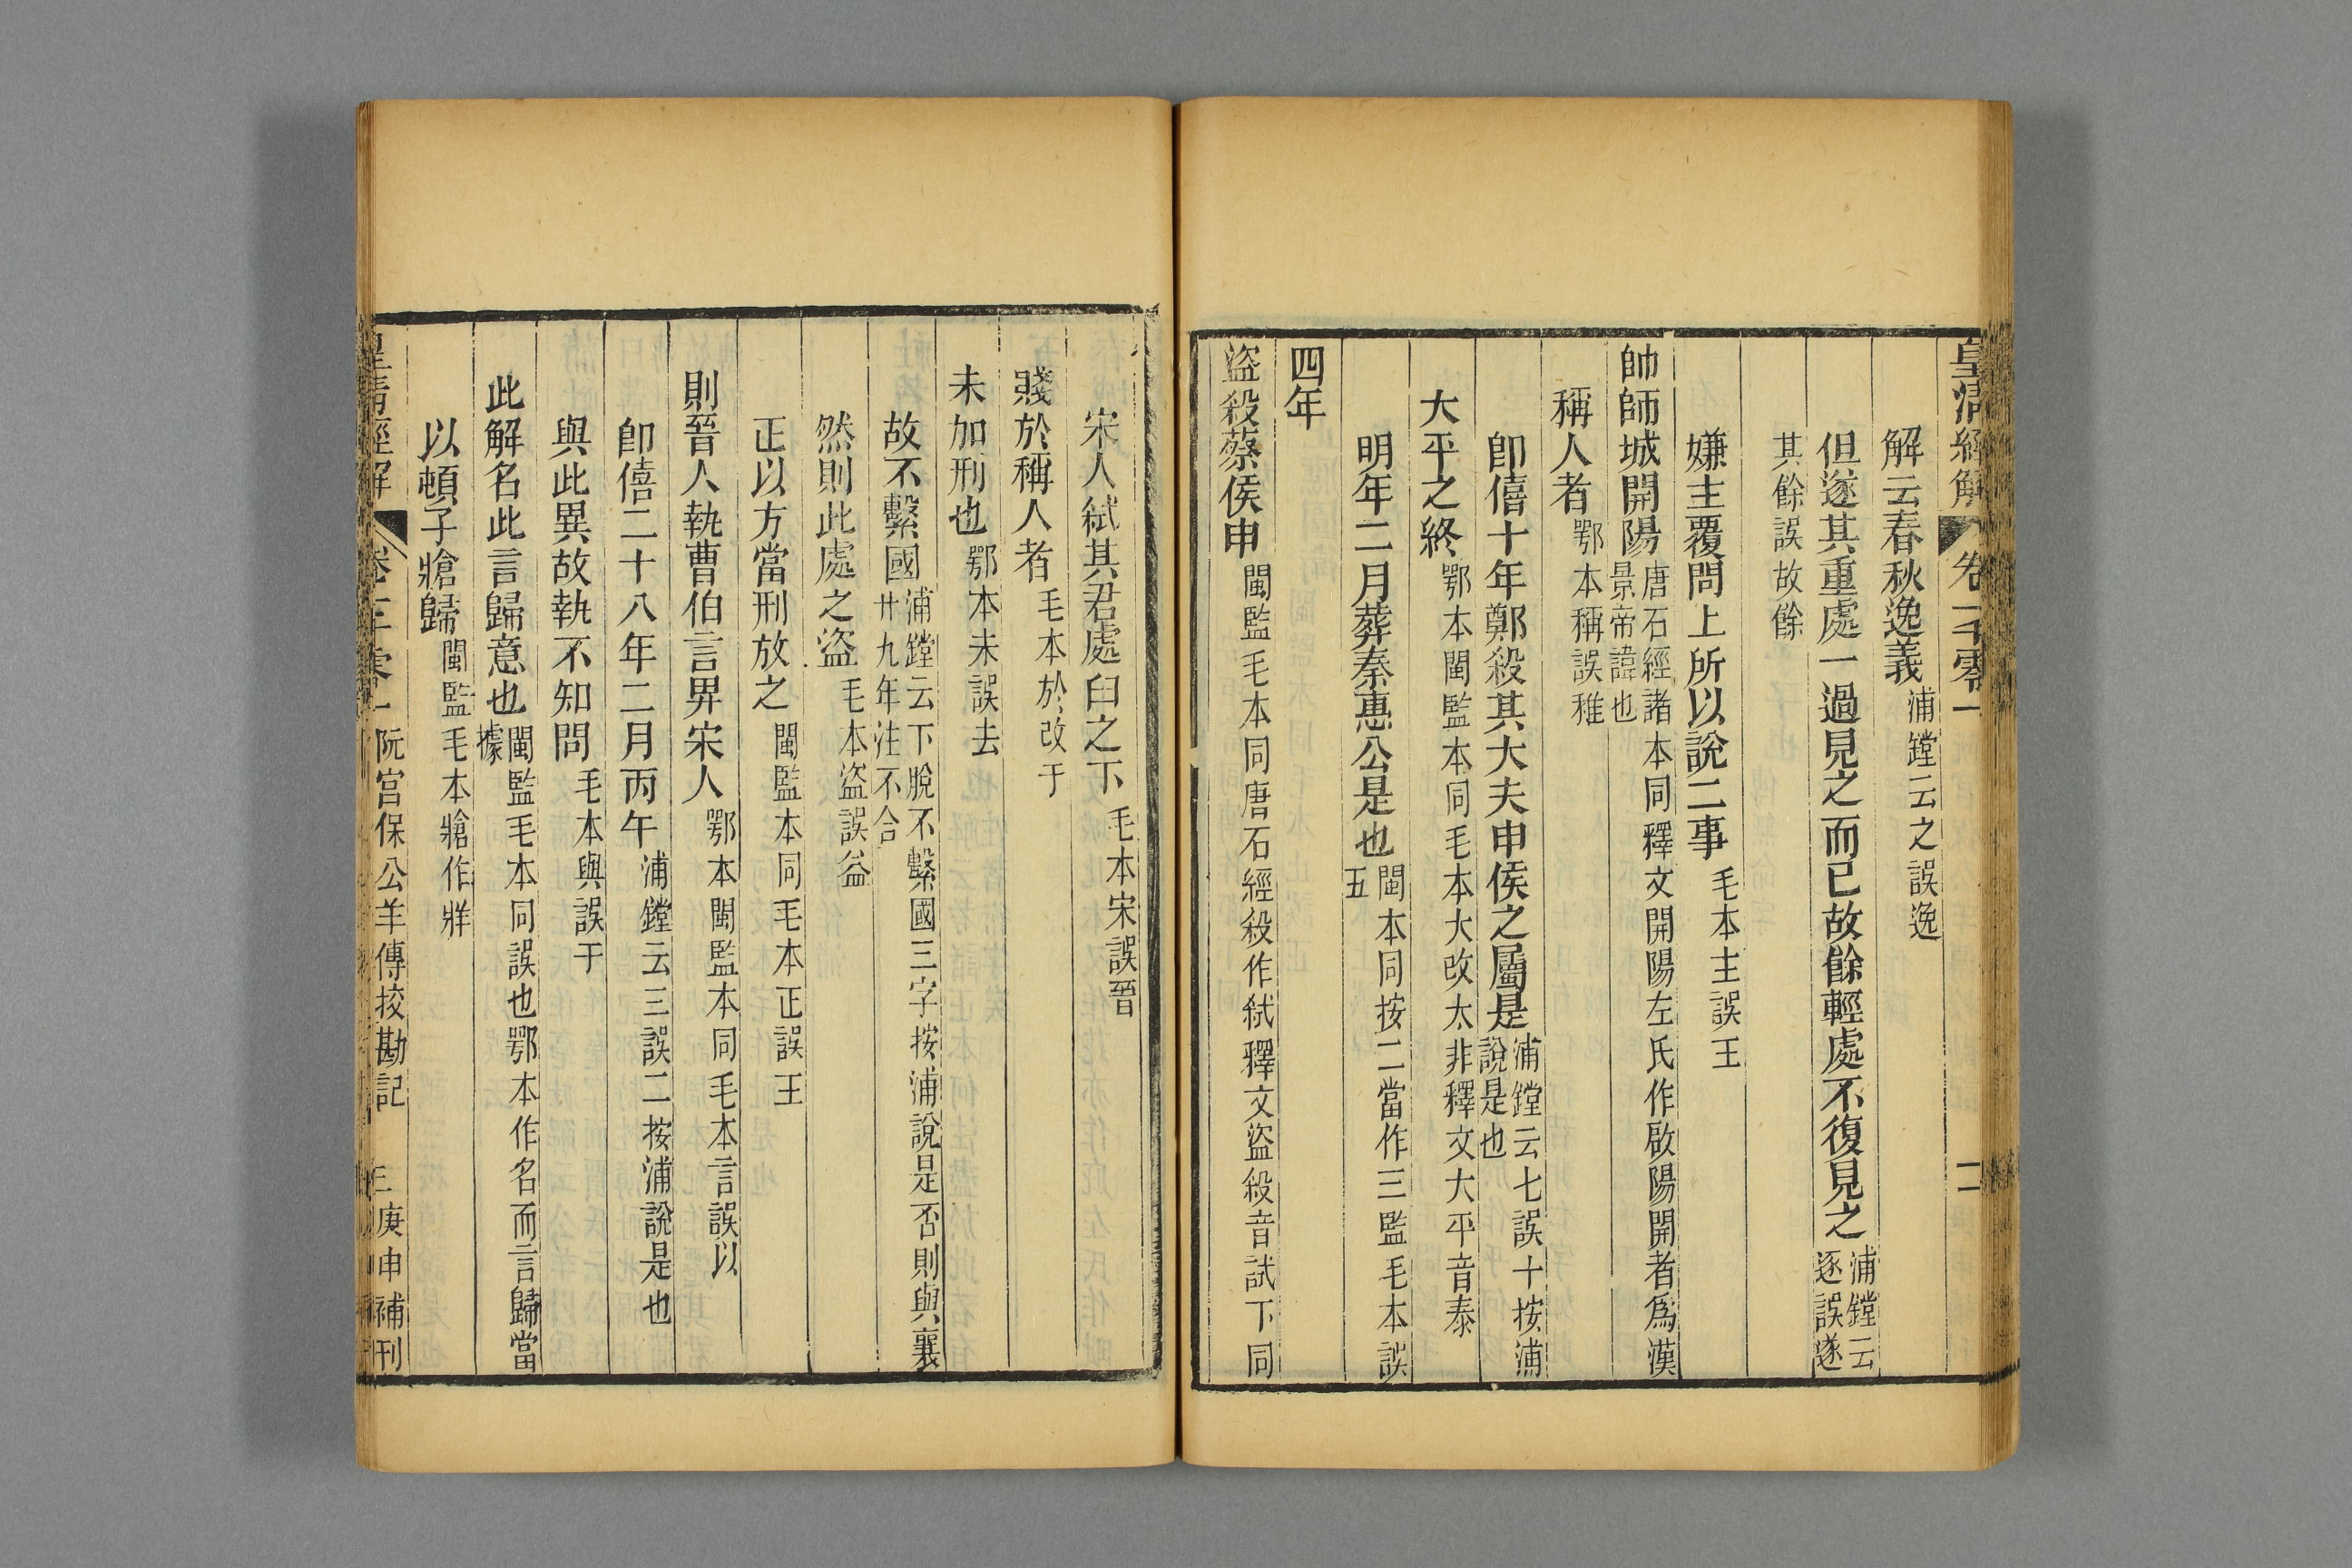 皇清經解 卷一千零一 二
解云春秋逸義浦鏜云之誤逸
但遂其重處一過見之而已故餘輕處不復見之浦鏜云逐誤遂
其餘誤故餘
嫌主覆問上所以說二事毛本主誤王
帥師城開陽唐石經諸本同釋文開陽左氏作啟陽開者爲漢景帝諱也
稱人者鄂本稱誤稚
卽僖十年鄭殺其大夫申侯之屬是浦鏜云七誤十按浦說是也
大平之終鄂本閩監本同毛本大改太非釋文大平音泰
明年二月葬秦惠公是也閩本同按二當作三監毛本誤五
四年
盜殺蔡侯申閩監毛本同唐石經殺作弒釋文盜殺音試下同
宋人弒其君處臼之下毛本宋誤晉
賤於稱人者毛本於改于
未加刑也鄂本未誤去
故不繫國浦鏜云下脫不繫國三字按浦說是否則與襄廿九年注不合
然則此處之盜毛本盜誤益
正以方當刑放之閩監本同毛本正誤王
則晉人執曹伯言畀宋人鄂本閩監本同毛本言誤以
卽僖二十八年二月丙午浦鏜云三誤二按浦說是也
與此異故執不知問毛本與誤于
此解名此言歸意也閩監毛本同誤也鄂本作名而言歸當據
以頓子牄歸閩監毛本牄作牂
皇清經解 卷一千零一 阮宮保公羊傳挍勘記 三 庚申補刊